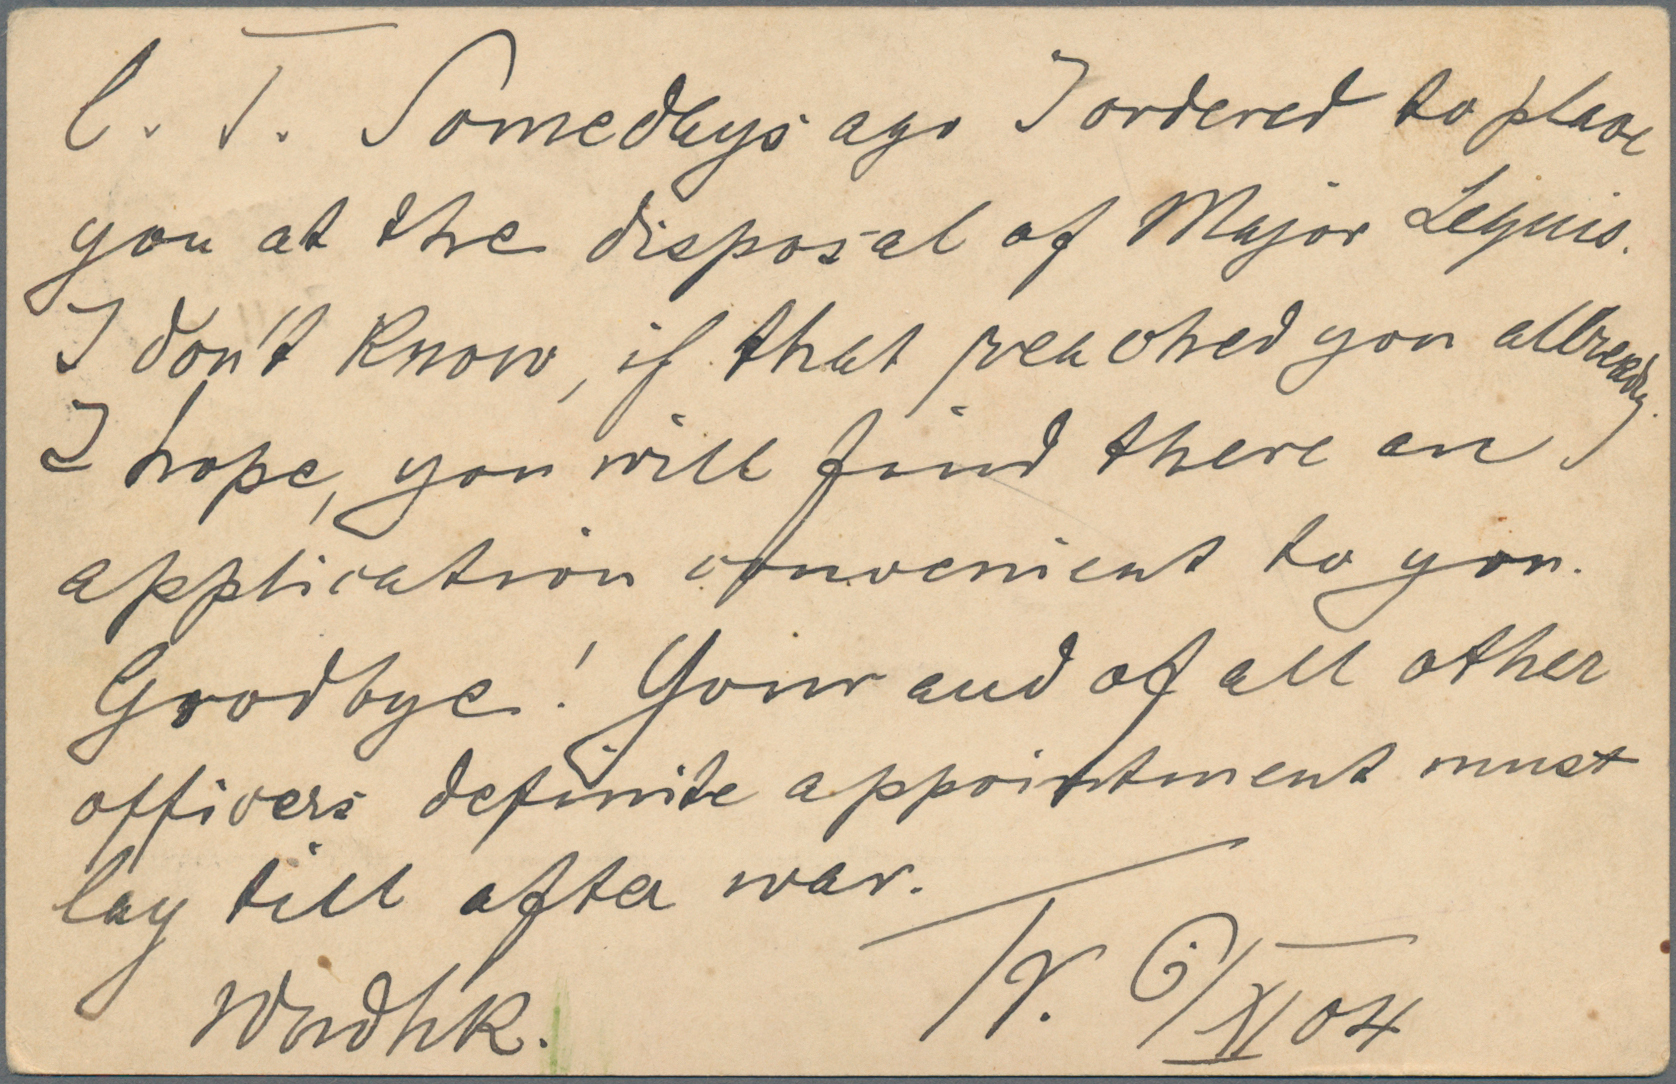 C. T. Somedays ago I ordered to place
you at the disposal of Major Lequis.
I don't know, if that reached you allready.
I hope, you will find there an
application convenient to you.
Goodbye! Your and of all other
officers definite appointment must
lay till after war.
Windhk. 6/XI 04